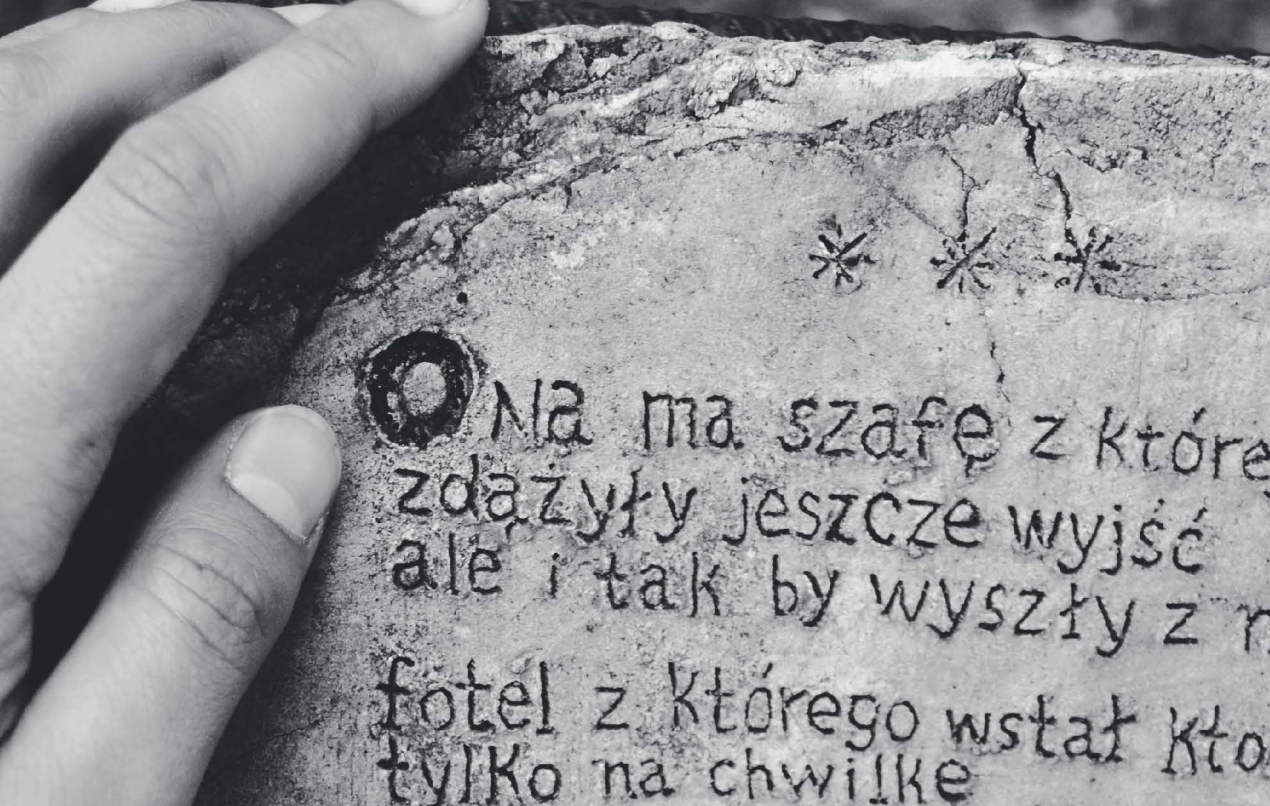 * * *
ONa ma szafę z które
zdążyły jeszcze wyjść
ale i tak by wyszły z
fotel z którego wstał kto
tylko na chwilkę